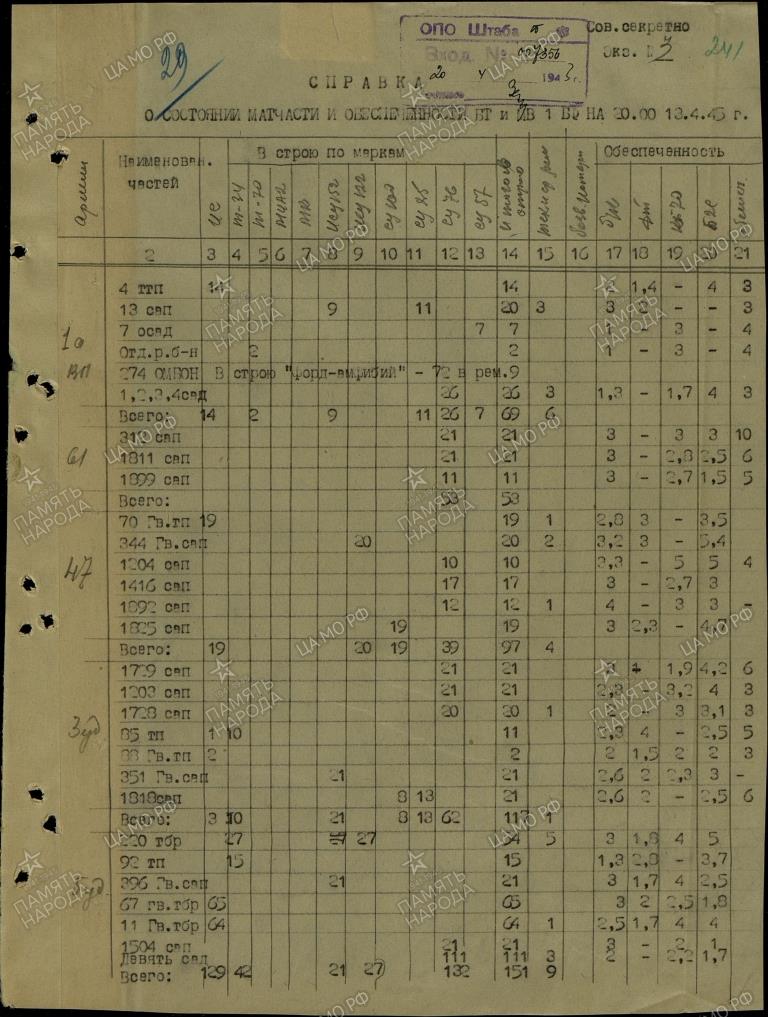 ОПО Штаба
Сов.секретно
Вход. №
Экз. № 2
241
29
20 V 1943 г.
СПРАВКА
О СОСТОЯНИИ МАТЧАСТИ И ОБЕСПЕЧЕННОСТИ БТ и МВ 1 БФ НА 20.00 13.4.45 г.
Армии Наименован. частей В строю по маркам Обеспеченность
ис т-34 т-70 ису152 ису122 су 100 су 85 су 76 су 57 Итого в строю
2 3 4 5 6 7 8 9 10 11 12 13 14 15 16 17 18 19 20 21
4 ттп 14 14 1,4 - 4 3
13 сап 9 11 20 3 3 2 - - 3
7 осад 7 7 1 - 3 - 4
Отд.р.б-н 2 2 1 - 3 - 4
274 ОМБОН В строю "Форд-амфибий" - 72 в рем.9
1,2,3,4сад 26 26 3 1,3 - 1,7 4 3
Всего: 14 2 9 11 26 7 69 6
сап 21 21 3 - 3 3 10
61 1811 сап 21 21 3 - 2,8 2,5 6
1899 сап 11 11 3 - 2,7 1,5 5
Всего: 53 53
70 Гв.тп 19 19 1 2,8 3 - 3,5
344 Гв.сап 20 20 2 3,2 3 - 5,4
47 1204 сап 10 10 3,3 - 5 5 4
1416 сап 17 17 3 - 2,7 3
1892 сап 12 12 1 4 - 3 3 -
1825 сап 19 19 3 2,3 - 4,7
Всего: 19 20 19 39 97 4
1729 сап 21 21 3 1,9 4,2 6
1203 сап 21 21 2,3 - 3,2 4 3
3уд 1728 сап 20 20 1 2 - 3 3,1 3
85 тп 1 10 11 2,3 4 - 2,5 5
88 Гв.тп 2 2 2 1,5 2 2 3
351 Гв.сап 21 21 2,6 2 2,3 3 -
1818сап 8 13 21 2,6 2 - 2,5 6
Всего: 3 10 21 8 13 62 117 1
220 тбр 27 27 54 5 3 1,8 4 5
92 тп 15 15 1,3 2,8 - 3,7
5уд 396 Гв.сап 21 21 3 1,7 4 2,5
67 гв.тбр 65 65 3 2 2,5 1,8
11 Гв.тбр 64 64 1 2,5 1,7 4 4
1504 сап 21 21 3 - 2 1
Девять сад 111 111 3 2 - 2,2 1,7
Всего: 129 42 21 27 132 151 9